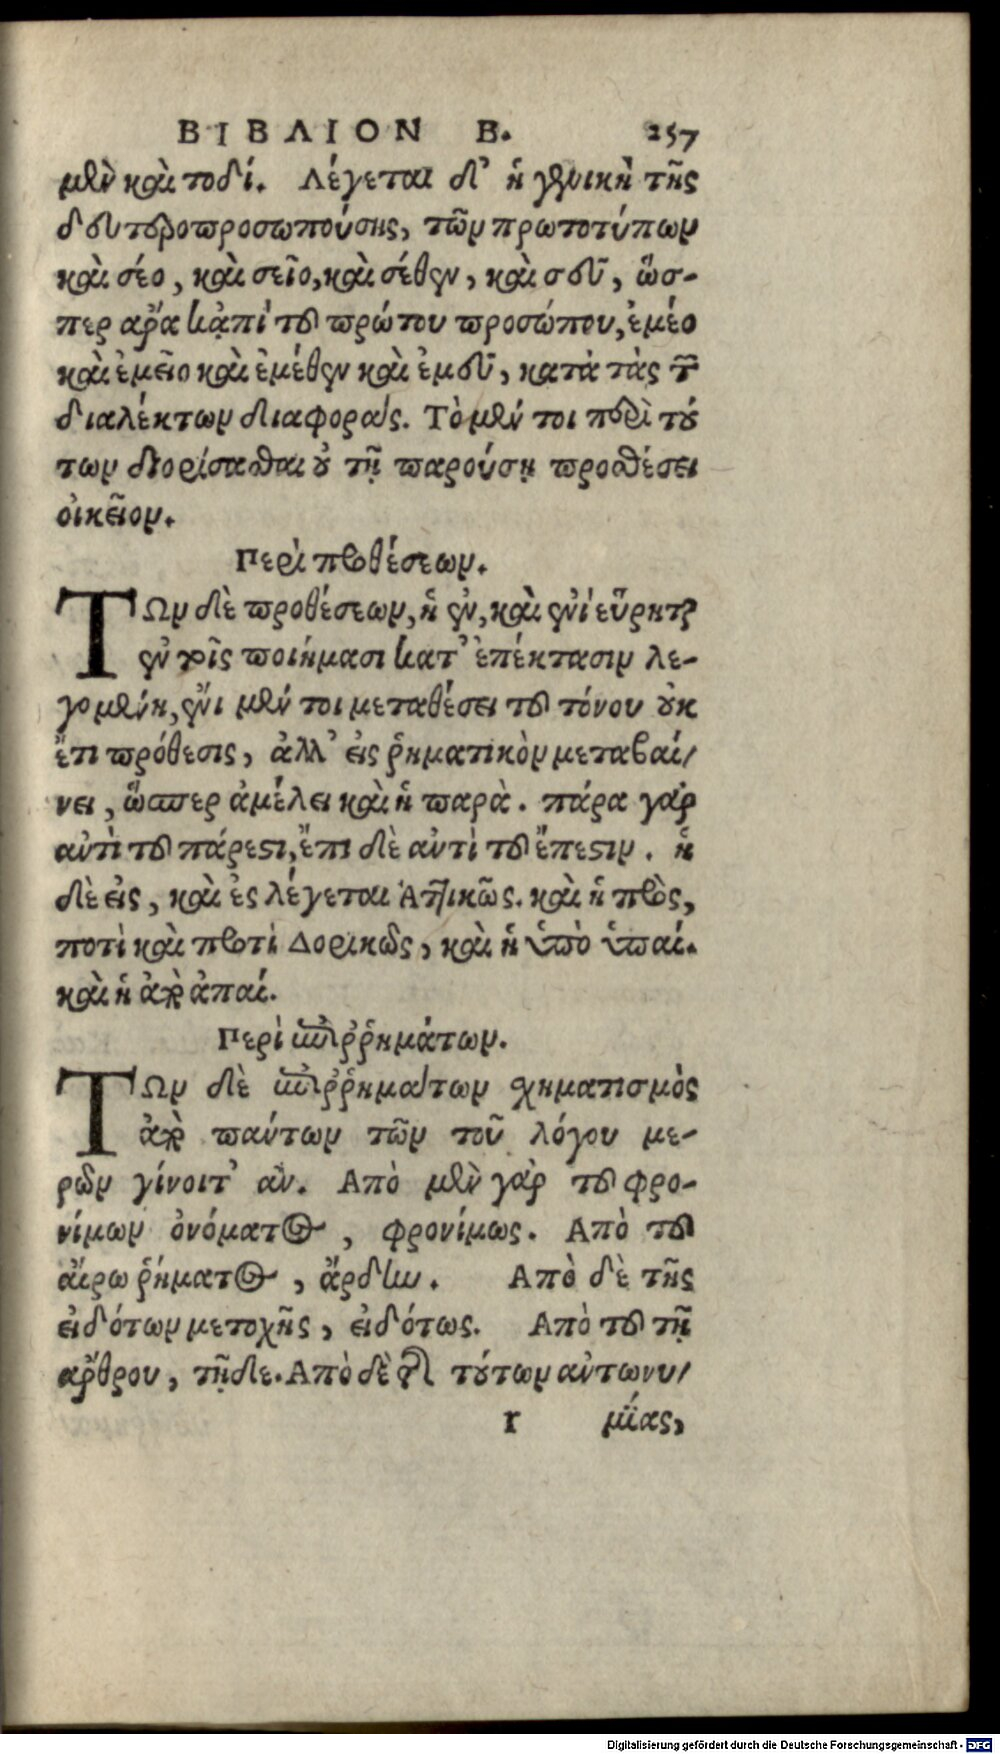 ΒΙΒΛΙΟΝ Β. 257
μὲν καὶ τοδί. Λέγεται δ' ἡ γενικὴ τῆς
δευτεροπροσωπούσης, τῶν πρωτοτύπων
καὶ σέο, καὶ σεῖο, καὶ σέθεν, καὶ σεῦ, ὥσ-
περ ἄρα κἀπὶ τοῦ πρώτου προσώπου, ἐμέο
καὶ ἐμεῖο καὶ ἐμέθεν καὶ ἐμεῦ, κατὰ τὰς τῶν
διαλέκτων διαφοράς. Τὸ μέν τοι περὶ τού
των διορίσασθαι οὐ τῇ παρούσῃ προθέσει
οἰκεῖον.
Περὶ προθέσεων.
ΤΩν δὲ προθέσεων, ἡ ἐν, καὶ ἐνὶ εὕρηται
ἐν τοῖς ποιήμασι κατ' ἐπέκτασιν λε-
γομένη, ἔνι μέν τοι μεταθέσει τοῦ τόνου οὐκ
ἔτι πρόθεσις, ἀλλ' εἰς ῥηματικὸν μεταβαί/
νει, ὥσπερ ἀμέλει καὶ ἡ παρὰ. πάρα γὰρ
αὐτὶ τοῦ πάρεστι, ἔπι δὲ αὐτὶ τοῦ ἔπεστιν. ἡ
δὲ εἰς, καὶ ἐς λέγεται Ἀττικῶς. καὶ ἡ πρὸς,
ποτὶ καὶ προτὶ Δορικῶς, καὶ ἡ ὑπὸ ὑπαί.
καὶ ἡ ἀπὸ ἀπαί.
Περὶ ἐπιῤῥημάτων.
ΤΩν δὲ ἐπιῤῥημάτων σχηματισμὸς
ἀπὸ πάντων τῶν τοῦ λόγου με-
ρῶν γίνοιτ' ἄν. Ἀπὸ μὲν γὰρ τοῦ φρο-
νίμων ὀνόματος, φρονίμως. Ἀπὸ τοῦ
αἴρω ῥήματος, ἄρδην. Ἀπὸ δὲ τῆς
εἰδότων μετοχῆς, εἰδότως. Ἀπὸ τοῦ τῇ
ἄρθρου, τῇδε. Ἀπὸ δὲ τῆς τούτων αὐτωνυ/
r μίας,
Digitalisierung gefördert durch die Deutsche Forschungsgemeinschaft - DFG